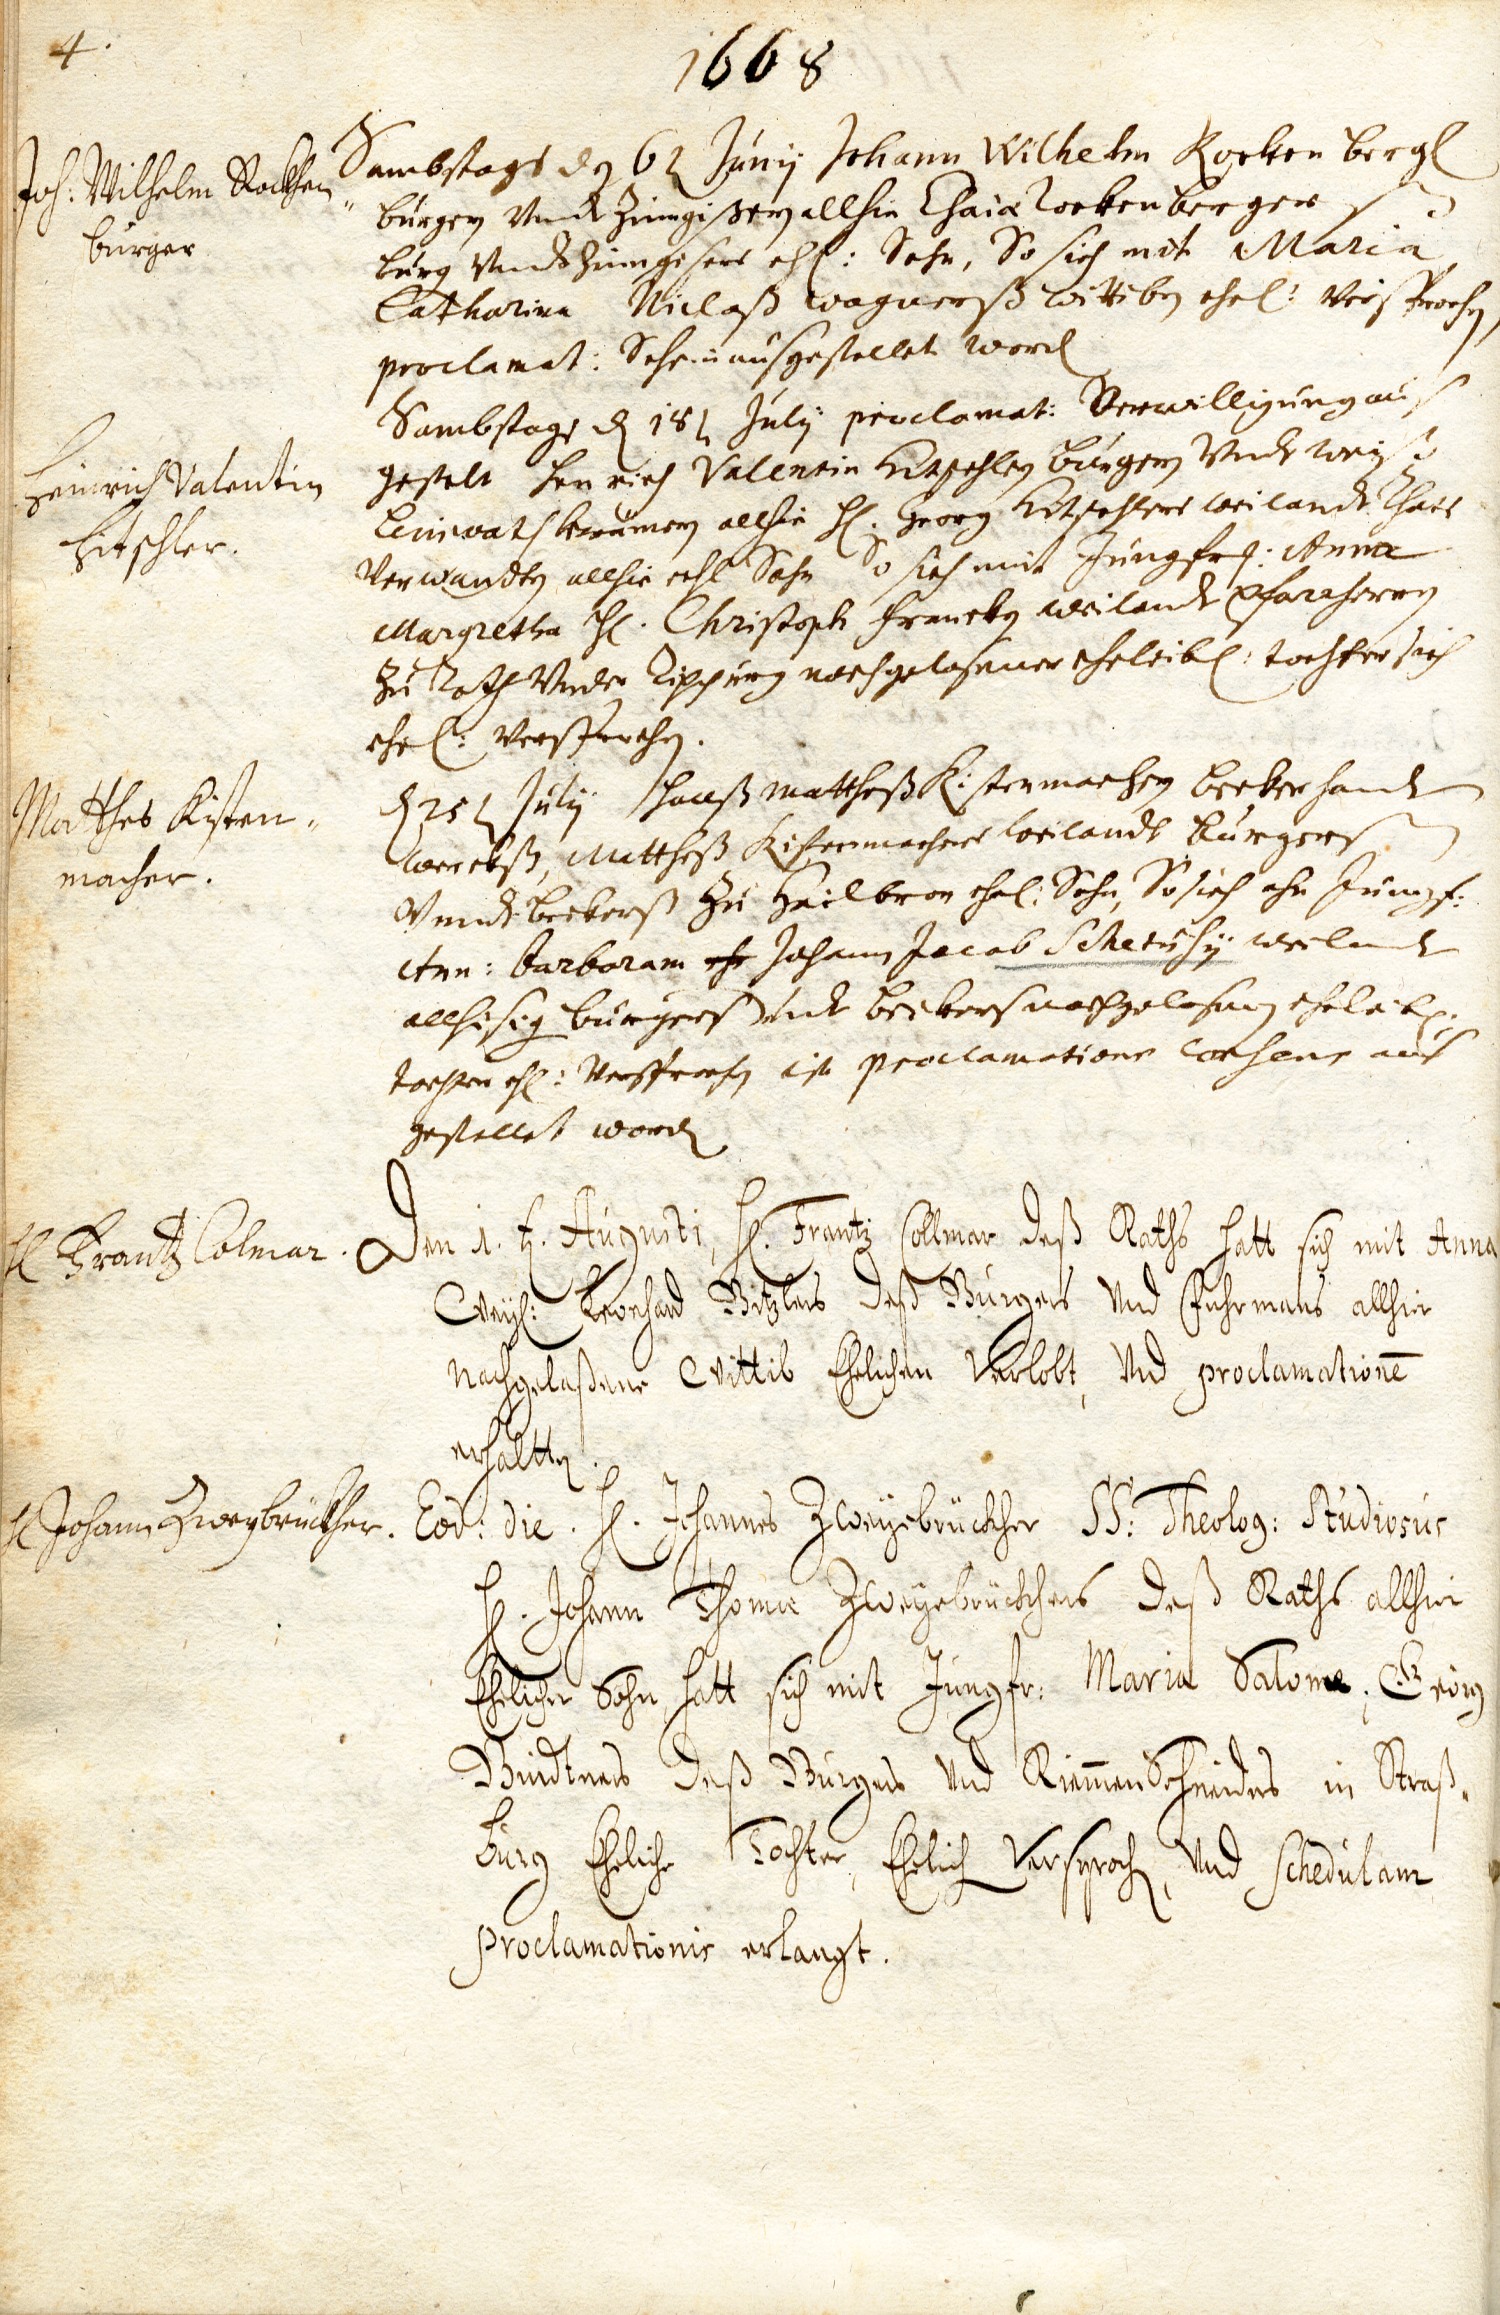 4.
1668
Joh: Wilhelm Rockhen
burger
Sambstags den 6t Junij Johann Wilhelm Rocken bergl
burgern Undt Zinngißern allhie Rockenberger
burg Undt Zinngisers ehl: Sohn, So sich mit Maria
Catharina Niclaß wagnerß wittiben ehel: versprochen,
proclamat: Schein ausgestellet word
Heinrich Valentin
Hitschler.
Sambstags d 18t Julij proclamat: Verwilligung auß
gestelt Henrich Valentin Hitschler burgern Undt
allhie H. Georg Hitschlers weilandt
Verwandten allhie ehl Sohn So sich mit Jungfr: Anna
Margretha H. Christoph Francken weilandt Pfarrherrn
Zu Roth Under Rippurg nachgelasener eheleibl: tochter sich
ehel: Versprochen.
Matthes Kisten-
macher.
d 25t Julij Hanß Mattheß Kistenmacher becker handt
werckß, Mattheß Kistenmachers weilandt burgers
Unndt beckerß Zu Heilbron ehel: Sohn, So sich ahn Jungf:
Ann: barbaram Johann Jacob weilandt
allhisig burgers Undt beckers nachgelasnen eheleibl:
tochter ehl: Versprochen ist proclamations aus
gestellet word
H Frantz Colmar.
Den 1. t. Augusti, H. Frantz Collmar deß Raths hatt sich mit Anna
Weyl: Leonhard Bitzlers deß Burgers Und Fuhrmans allhier
nachgelaßene Wittib Ehelichen Verlobt, Und proclamationē
erhaltten.
H Johann Zweybrückher.
Eod: die. H. Johannes Zweyebrückher SS: Theolog: Studiosus
H. Johann Thomae Zweyebrückhers deß Raths allhier
Ehelicher Sohn, hatt sich mit Jungfr: Maria Salome, Georg
Bindtners deß Burgers Und Riemen Schneiders in Straß-
burg Eheliche Tochter, Ehelich Versproch, Und schedulam
proclamationis erlangt.